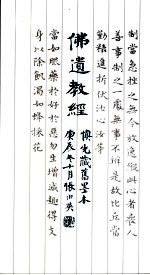 制當急挫之無令放逸縱此心者喪人
善事制之一處無事不辨是故比丘當
勤精進折伏汝心汝等
藏舊墨本
庚辰十月張
佛遺教經
當如服藥於好於惡勿生增減趣得支
身以除飢渴如蜂採花